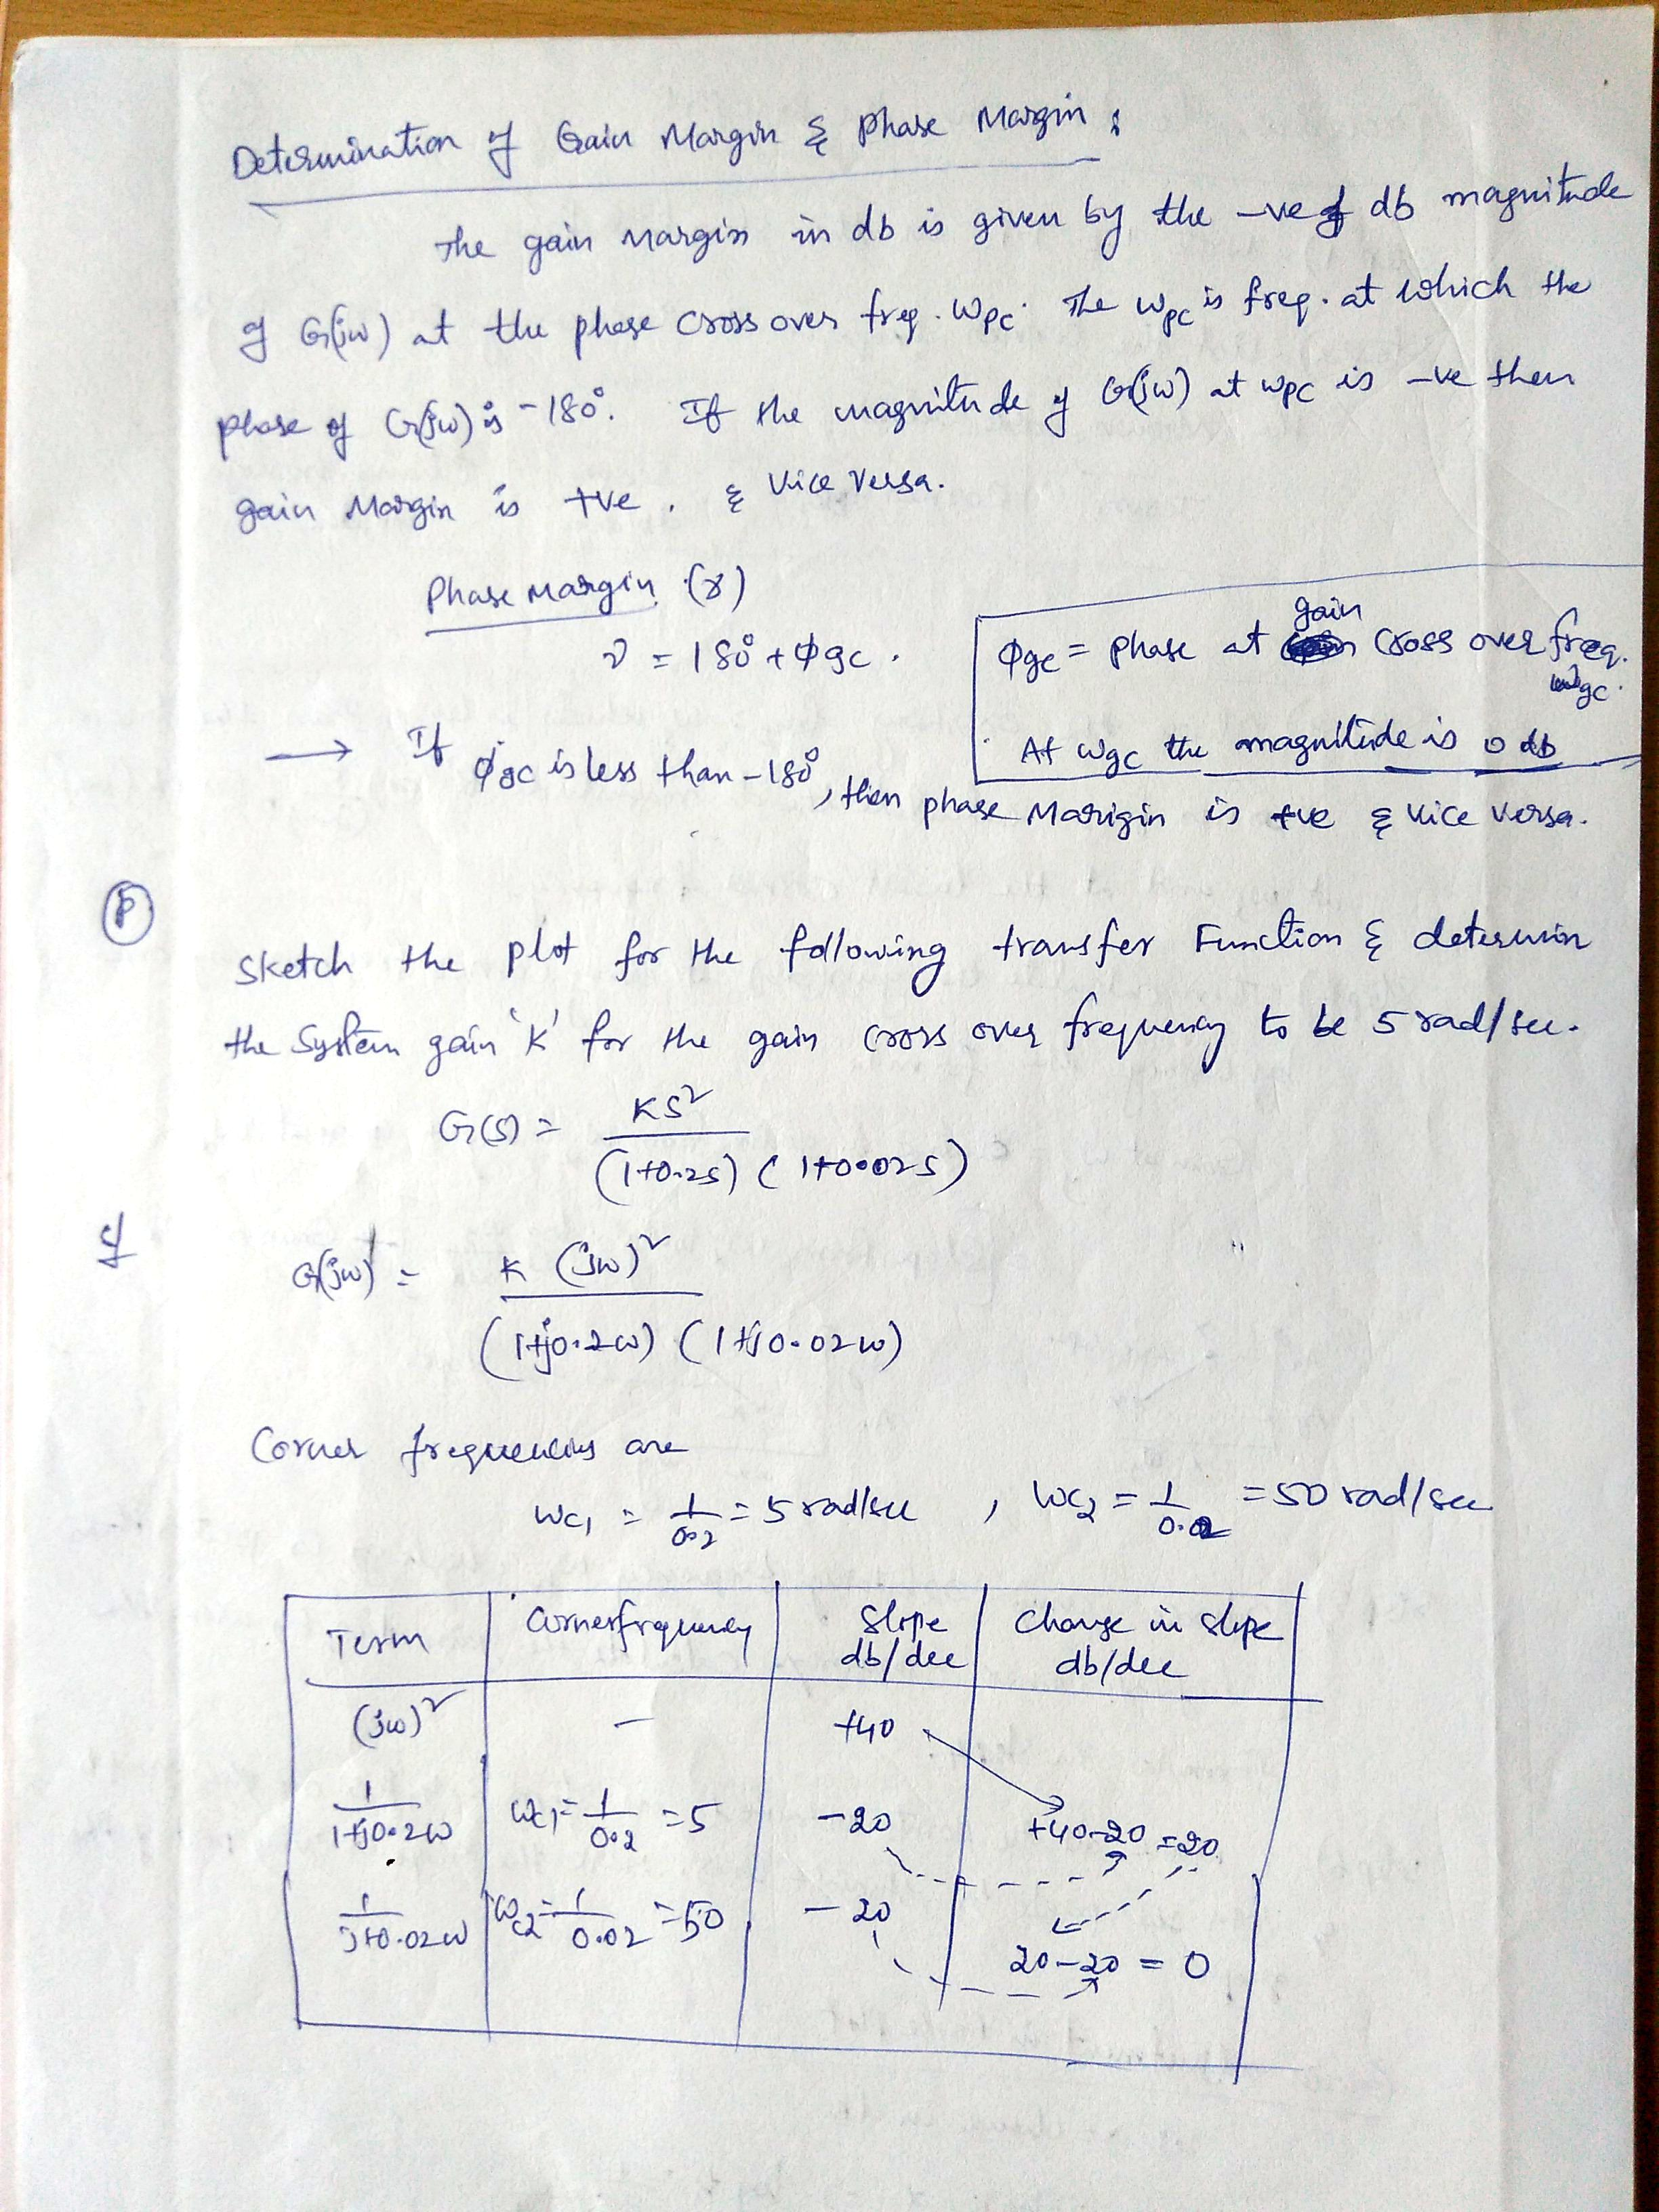 Determination of Gain Margin & Phase Margin :
The gain Margin in db is given by the -ve of db magnitude
of G(jω) at the phase cross over freq. ωpc. The ωpc is freq. at which the
phase of G(jω) is -180°. If the magnitude of G(jω) at ωpc is -ve then
gain Margin is +ve . & Vice Versa.
Phase Margin (γ)
γ = 180° + ϕgc .
ϕgc = phase at gain cross over freq.
ωgc.
At ωgc the magnitude is 0 db
→ If ϕgc is less than -180°, then phase Marigin is +ve & Vice Versa.
(P)
Sketch the plot for the following transfer Function & determin
the System gain 'K' for the gain cross over frequency to be 5 rad/sec.
G(s) = KS² / (1+0.2s) (1+0.02s)
G(jω) = K (jω)² / (1+j0.2ω) (1+j0.02ω)
Corner frequencies are
ωc1 = 1/0.2 = 5 rad/sec , ωc2 = 1/0.02 = 50 rad/sec
Term | Corner frequency | Slope db/dec | Change in Slope db/dec
(jω)² | — | +40
1/1+j0.2ω | ωc1 = 1/0.2 = 5 | -20 | +40-20 = 20
1/j+0.02ω | ωc2 = 1/0.02 = 50 | -20 | 20-20 = 0